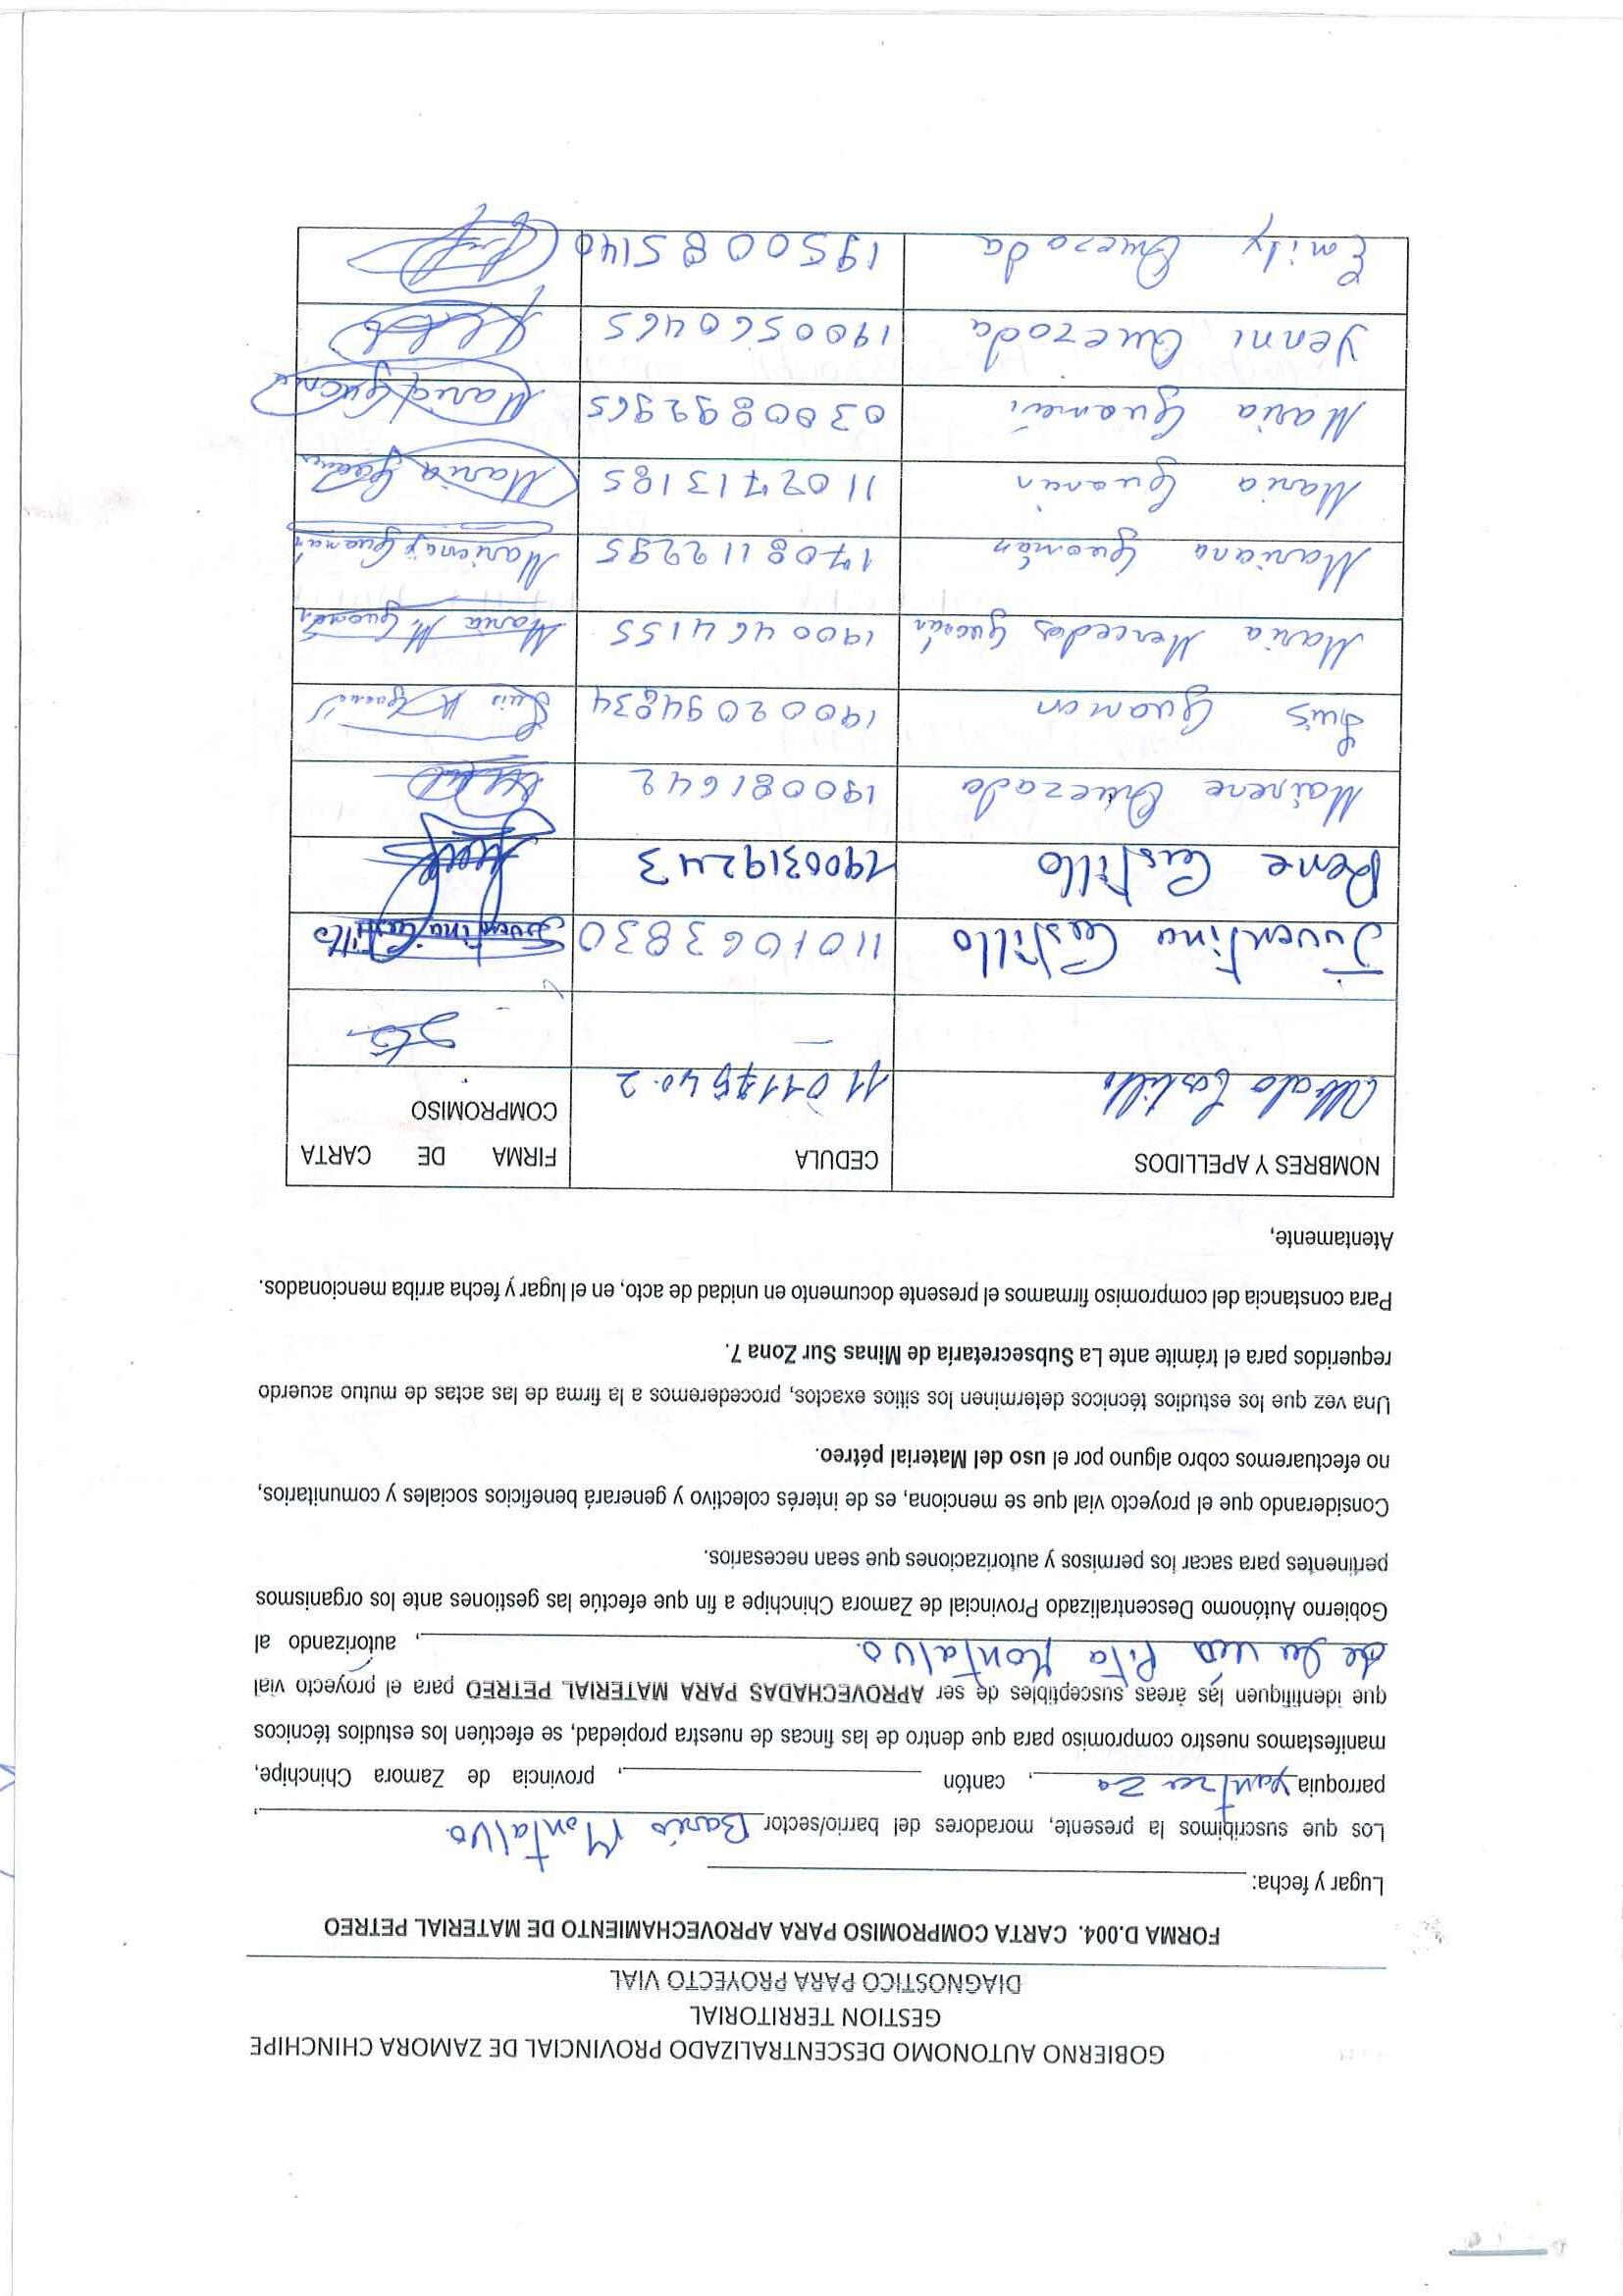 GOBIERNO AUTONOMO DESCENTRALIZADO PROVINCIAL DE ZAMORA CHINCHIPE
GESTION TERRITORIAL
DIAGNOSTICO PARA PROYECTO VIAL
FORMA D.004. CARTA COMPROMISO PARA APROVECHAMIENTO DE MATERIAL PETREO
Lugar y fecha:
Los que suscribimos la presente, moradores del barrio/sector Barrio Montalvo.,
parroquia Yantzaza, cantón , provincia de Zamora Chinchipe,
manifestamos nuestro compromiso para que dentro de las fincas de nuestra propiedad, se efectúen los estudios técnicos
que identifiquen las áreas susceptibles de ser APROVECHADAS PARA MATERIAL PETREO para el proyecto vial
Pita Montalvo., autorizando al
Gobierno Autónomo Descentralizado Provincial de Zamora Chinchipe a fin que efectúe las gestiones ante los organismos
pertinentes para sacar los permisos y autorizaciones que sean necesarios.
Considerando que el proyecto vial que se menciona, es de interés colectivo y generará beneficios sociales y comunitarios,
no efectuaremos cobro alguno por el uso del Material pétreo.
Una vez que los estudios técnicos determinen los sitios exactos, procederemos a la firma de las actas de mutuo acuerdo
requeridos para el trámite ante La Subsecretaría de Minas Sur Zona 7.
Para constancia del compromiso firmamos el presente documento en unidad de acto, en el lugar y fecha arriba mencionados.
Atentamente,
NOMBRES Y APELLIDOS CEDULA FIRMA DE CARTA COMPROMISO
Castillo
Juventino Castillo 1101063830 Juventino Castillo
Rene Castillo 1900319243
Mairene Quezada 190081642
Luis Guaman 19002094834 Luis
Maria Mercedes Guamán 1900464155 Maria M. Guamán
Mariana Guamán 1708112295 Mariana Guamán
Maria Guamán 1102713185 Maria
Maria Guamán 0300892965 Maria Guamán
Yenni Quezada 1900560465
Emily Quezada 1950085140